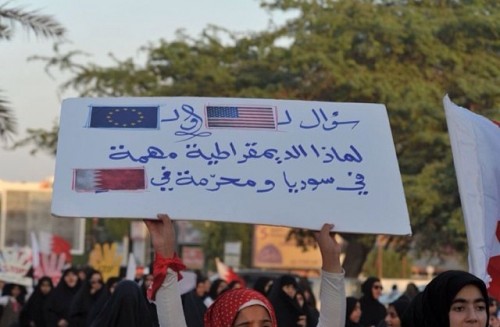 سؤال لـ و لـ
لماذا الديمقراطية مهمة
في سوريا ومحرّمة في